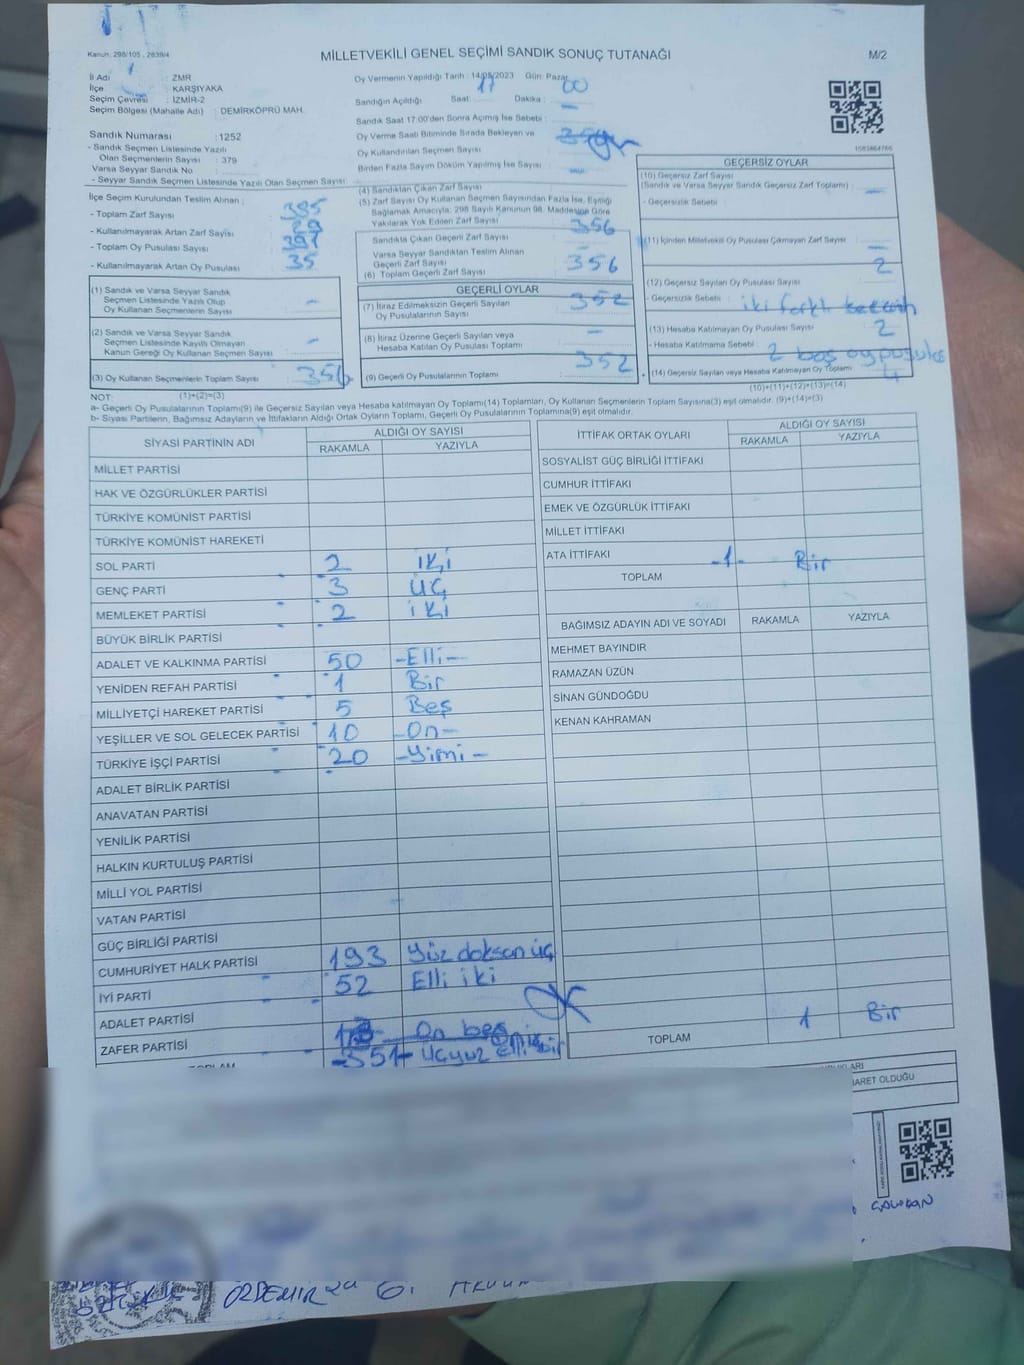 Kanun: 298/105, 2839/4
MİLLETVEKİLİ GENEL SEÇİMİ SANDIK SONUÇ TUTANAĞI
M/2
İl Adı : ZMR
İlçe : KARŞIYAKA
Seçim Çevresi : İZMİR-2
Seçim Bölgesi (Mahalle Adı) : DEMİRKÖPRÜ MAH.
Sandık Numarası : 1252
- Sandık Seçmen Listesinde Yazılı
Olan Seçmenlerin Sayısı : 379
Varsa Seyyar Sandık No :
- Seyyar Sandık Seçmen Listesinde Yazılı Olan Seçmen Sayısı :
Oy Vermenin Yapıldığı Tarih : 14/05/2023 Gün: Pazar
Sandığın Açıldığı Saat : 17 Dakika : 00
Sandık Saat 17:00'den Sonra Açımış İse Sebebi : —
Oy Verme Saati Bitiminde Sırada Bekleyen ve
Oy Kullandırılan Seçmen Sayısı :
Birden Fazla Sayım Döküm Yapılmış İse Sayısı : —
İlçe Seçim Kurulundan Teslim Alınan :
- Toplam Zarf Sayısı : 395
- Kullanılmayarak Artan Zarf Sayısı :
- Toplam Oy Pusulası Sayısı : 391
- Kullanılmayarak Artan Oy Pusulası : 35
(1) Sandık ve Varsa Seyyar Sandık
Seçmen Listesinde Yazılı Olup
Oy Kullanan Seçmenlerin Sayısı : —
(2) Sandık ve Varsa Seyyar Sandık
Seçmen Listesinde Kayıtlı Olmayan
Kanun Gereği Oy Kullanan Seçmen Sayısı : —
(3) Oy Kullanan Seçmenlerin Toplam Sayısı : 356
(1)+(2)=(3)
(4) Sandıktan Çıkan Zarf Sayısı
(5) Zarf Sayısı Oy Kullanan Seçmen Sayısından Fazla İse, Eşitliği
Bağlamak Amacıyla; 298 Sayılı Kanunun 98. Maddesine Göre
Yakılarak Yok Edilen Zarf Sayısı 356
Sandıkta Çıkan Geçerli Zarf Sayısı
Varsa Seyyar Sandıktan Teslim Alınan
Geçerli Zarf Sayısı 356
(6) Toplam Geçerli Zarf Sayısı
GEÇERLİ OYLAR
(7) İtiraz Edilmeksizin Geçerli Sayılan
Oy Pusulalarının Sayısı 352
(8) İtiraz Üzerine Geçerli Sayılan veya
Hesaba Katılan Oy Pusulası Toplamı —
(9) Geçerli Oy Pusulalarının Toplamı 352
1083864766
GEÇERSİZ OYLAR
(10) Geçersiz Zarf Sayısı
(Sandık ve Varsa Seyyar Sandık Geçersiz Zarf Toplamı) : —
- Geçersizlik Sebebi
(11) İçinden Milletvekili Oy Pusulası Çıkmayan Zarf Sayısı —
(12) Geçersiz Oy Pusulası Sayısı 2
- Geçersizlik Sebebi : iki farklı
(13) Hesaba Katılmayan Oy Pusulası Sayısı 2
- Hesaba Katılmama Sebebi : 2 boş oy pusulası
(14) Geçersiz Sayılan veya Hesaba Katılmayan Oy Toplamı 4
(10)+(11)+(12)+(13)=(14)
NOT:
a- Geçerli Oy Pusulaları Toplamı(9) ile Geçersiz Sayılan veya Hesaba katılmayan Oy Toplamı(14) Toplamları, Oy Kullanan Seçmenlerin Toplam Sayısına(3) eşit olmalıdır. (9)+(14)=(3)
b- Siyasi Partilerin, Bağımsız Adayların ve İttifakların Aldığı Ortak Oyların Toplamı, Geçerli Oy Pusulalarının Toplamına(9) eşit olmalıdır.
SİYASİ PARTİNİN ADI ALDIĞI OY SAYISI
RAKAMLA YAZIYLA
MİLLET PARTİSİ
HAK VE ÖZGÜRLÜKLER PARTİSİ
TÜRKİYE KOMÜNİST PARTİSİ
TÜRKİYE KOMÜNİST HAREKETİ
SOL PARTİ 2 İKİ
GENÇ PARTİ 3 ÜÇ
MEMLEKET PARTİSİ 2 İKİ
BÜYÜK BİRLİK PARTİSİ
ADALET VE KALKINMA PARTİSİ 50 -Elli-
YENİDEN REFAH PARTİSİ 1 Bir
MİLLİYETÇİ HAREKET PARTİSİ 5 Beş
YEŞİLLER VE SOL GELECEK PARTİSİ 10 -On-
TÜRKİYE İŞÇİ PARTİSİ 20 -Yirmi-
ADALET BİRLİK PARTİSİ
ANAVATAN PARTİSİ
YENİLİK PARTİSİ
HALKIN KURTULUŞ PARTİSİ
MİLLİ YOL PARTİSİ
VATAN PARTİSİ
GÜÇ BİRLİĞİ PARTİSİ
CUMHURİYET HALK PARTİSİ 193 Yüz doksan üç
İYİ PARTİ 52 Elli iki
ADALET PARTİSİ
ZAFER PARTİSİ On beş
TOPLAM -351- Üçyüz Elli bir
İTTİFAK ORTAK OYLARI ALDIĞI OY SAYISI
RAKAMLA YAZIYLA
SOSYALİST GÜÇ BİRLİĞİ İTTİFAKI
CUMHUR İTTİFAKI
EMEK VE ÖZGÜRLÜK İTTİFAKI
MİLLET İTTİFAKI
ATA İTTİFAKI -1- Bir
TOPLAM
BAĞIMSIZ ADAYIN ADI VE SOYADI RAKAMLA YAZIYLA
MEHMET BAYINDIR
RAMAZAN ÜZÜN
SİNAN GÜNDOĞDU
KENAN KAHRAMAN
TOPLAM 1 Bir
OLDUĞU
ÖZDEMİR